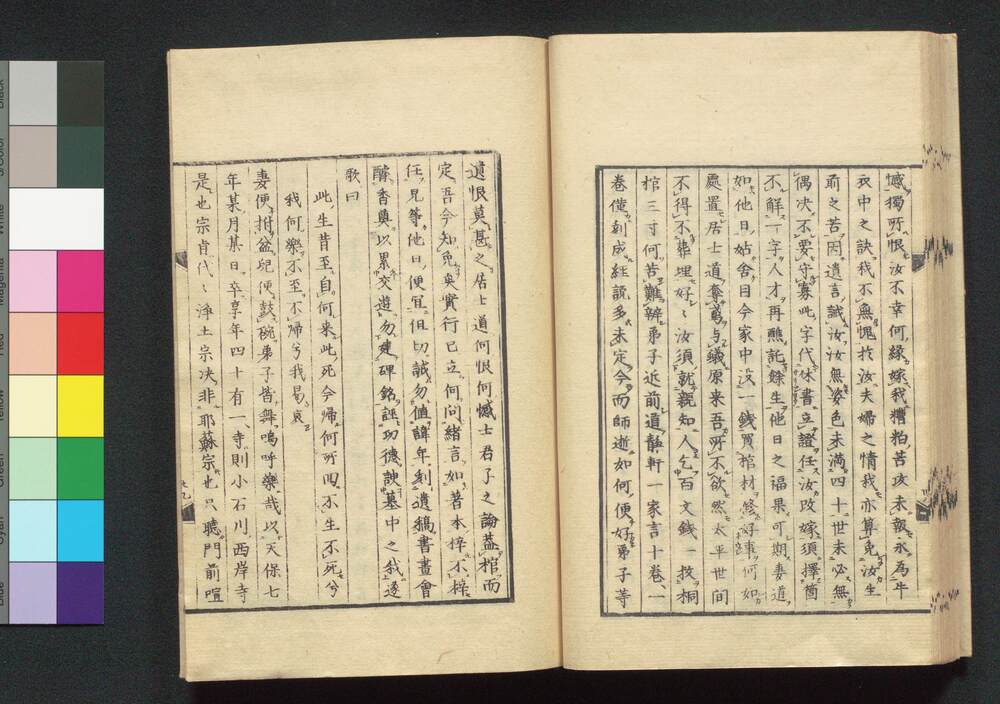 憾獨所恨汝不幸何緣嫁我糟粕苦攻未報永為牛
衣中之訣我不無愧於汝夫婦之情我亦算免汝生
前之苦因遺言誡汝汝無姿色未滿四十世未必無
偶决不要守寡此字代休書立證任汝改嫁須擇箇
不解一字人才再醮託餘生他日之福果可期妻道
如他日姑舍目今家中沒一錢買棺材終好事何如
處置居士道奪鳶与蟻原來吾所不欲然太平世間
不得不葬埋好〻汝須就親知人乞百文錢一投桐
棺三寸何苦難辨弟子近前道靜軒一家言十卷一
卷僅刻成經說多未定今而師逝如何便好弟子等
遺恨莫甚之居士道何恨何憾士君子之論蓋棺而
定吾今知免矣實行已立何問緒言如著本梓不梓
任兒等他日便宜但切誡勿値諱年刻遺稿書畫會
醵香奠以累交遊勿建碑銘誣功德諛墓中之我遂
歌曰
此生昔至自何來此死今歸何所四不生不死兮
我何樂不至不歸兮我曷哀
妻便拊盆兒便鼓碗弟子皆舞嗚呼樂哉以天保七
年某月某日卒享年四十有一寺則小石川西岸寺
是也宗肯代〻淨土宗决非耶蘇宗也只聽門前喧
Black
Color
White
Magenta
Red
Yellow
Green
Cyan
Blue